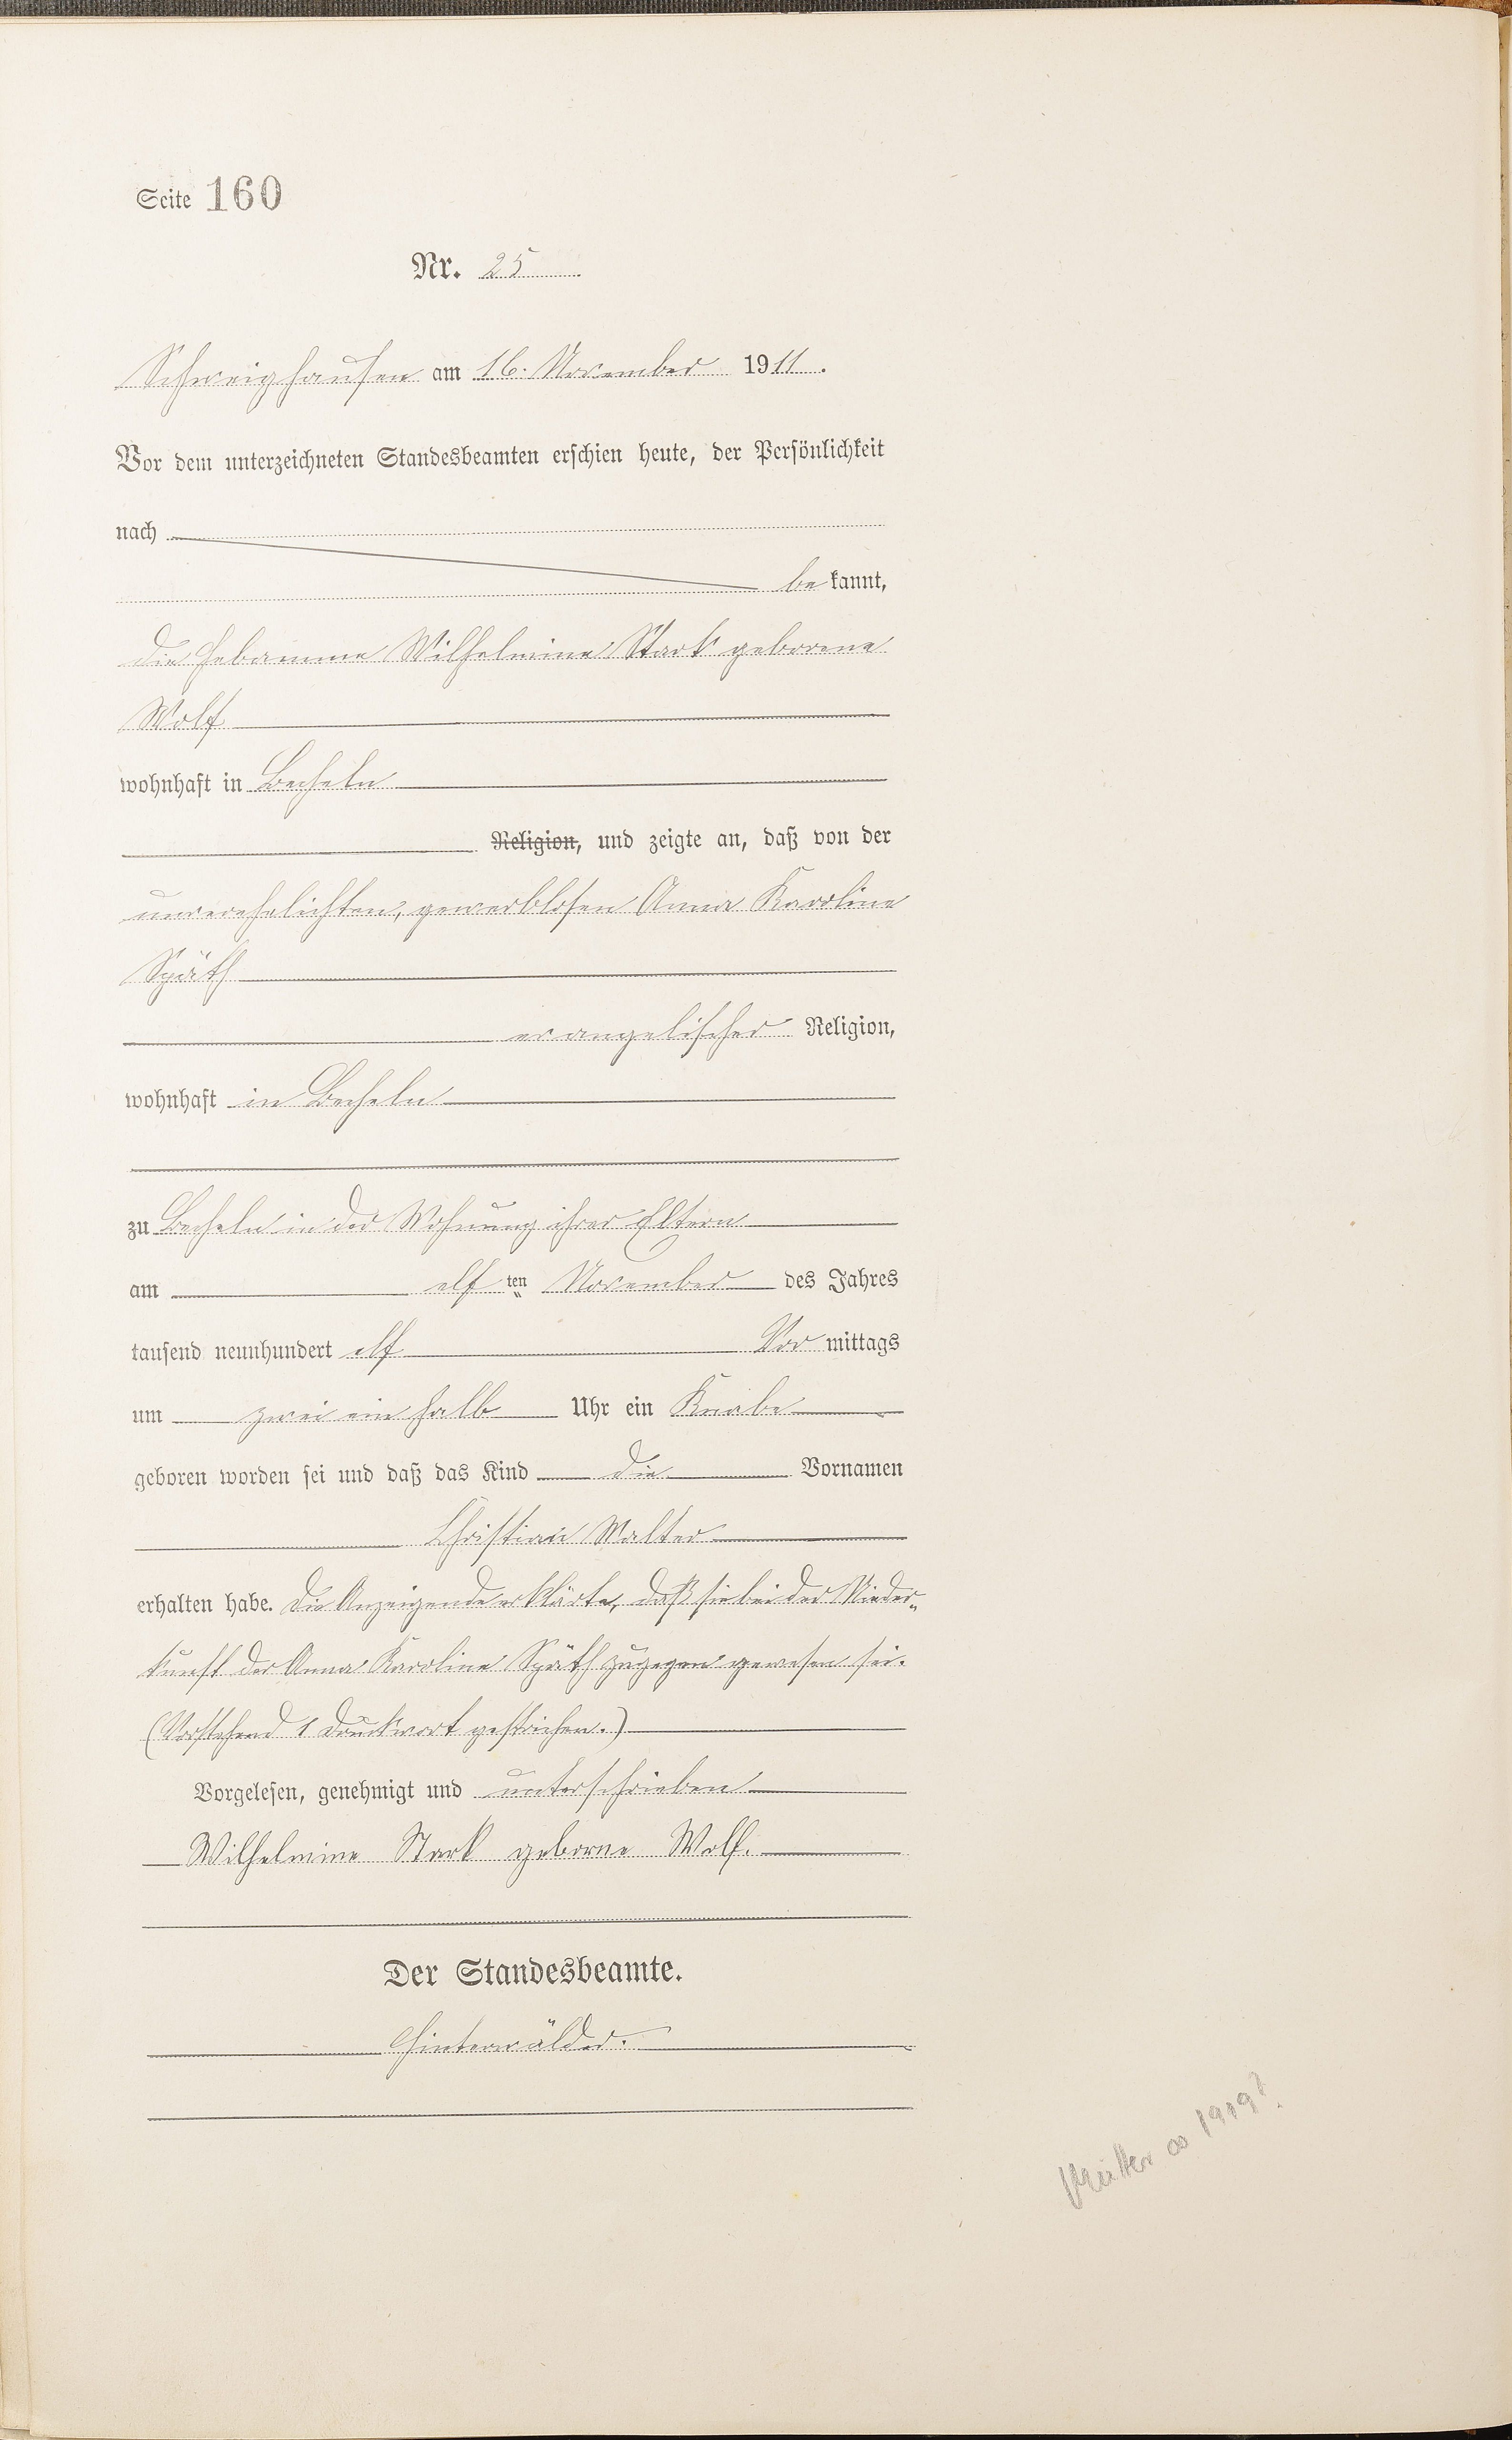 Seite 160
Nr. 25
Schweighausen am 16. November 1911.
Vor dem unterzeichneten Standesbeamten erschien heute, der Persönlichkeit
nach
be kannt,
die Hebamme Wilhelmine Stark geborene
Wolf
wohnhaft in Becheln
Religion, und zeigte an, daß von der
unverehelichten, gewerblosen Anna Karoline
Späth
evangelischer Religion,
wohnhaft in Becheln
zu Becheln in der Wohnung ihrer Eltern
am elf ten November des Jahres
tausend neunhundert elf Vor mittags
um zwei ein halb Uhr ein Knabe
geboren worden sei und daß das Kind die Vornamen
Christian Walter
erhalten habe. Die Anzeigende erklärte, daß sie bei der Nieder-
kunft der Anna Karoline Späth zugegen gewesen sei.
(Vorstehend 1 Druckwort gestrichen.)
Vorgelesen, genehmigt und unterschrieben
Wilhelmine Stark geborne Wolf.
Der Standesbeamte.
Hinterwälder.
Mutter ∞ 1919?